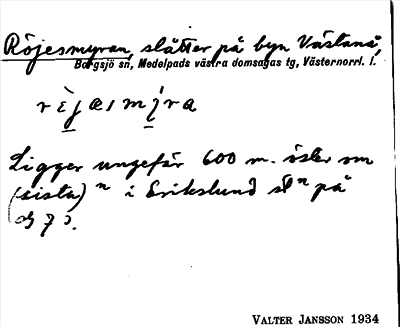 Röjesmyran, slåtter på byn Västanå,
Borgsjö sn, Medelpads västra domsagas tg, Västernorrl. l.
Ligger ungefär 600 m. öster om
(sista) n i Erikslund st n på
VALTER JANSSON 1934